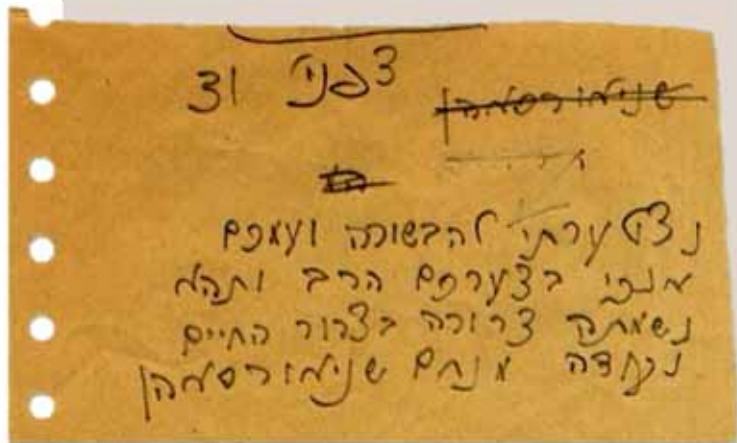 שניאורסאהן
נצטערתי להבשורה ועמכם
אנכי בצערכם הרב ותהא
נשמתה צרורה בצרור החיים
נקודה מנחם שניאורסאהן